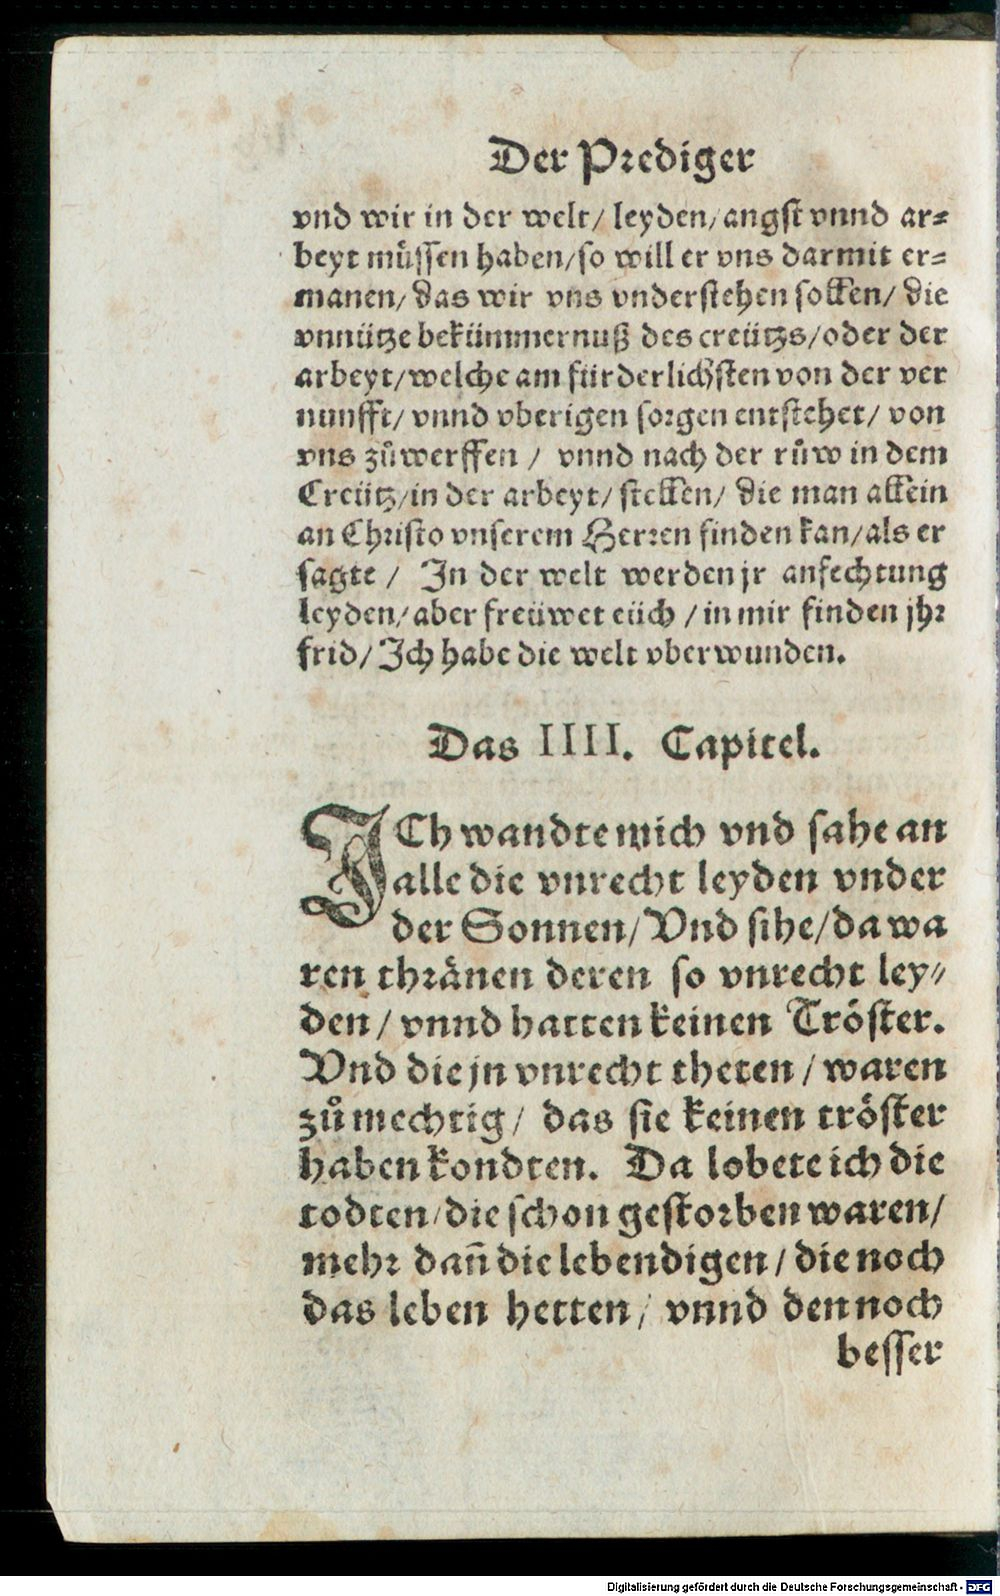 Der Prediger
vnd wir in der welt/ leyden/ angst vnnd ar⸗
beyt müssen haben/ so will er vns darmit er⸗
manen/ das wir vns vnderstehen sollen/ die
vnnütze bekümmernuß des creützs/ oder der
arbeyt/ welche am fürderlichsten von der ver
nunfft/ vnnd vberigen sorgen entstehet/ von
vns zůwerffen / vnnd nach der růw in dem
Creütz/ in der arbeyt/ stellen/ die man allein
an Christo vnserem Herren finden kan/ als er
sagte / In der welt werden jr anfechtung
leyden/ aber freüwet eüch / in mir finden jhr
frid/ Ich habe die welt vberwunden.
Das IIII. Capitel.
ICh wandte mich vnd sahe an
alle die vnrecht leyden vnder
der Sonnen/ Vnd sihe/ da wa
ren thränen deren so vnrecht ley⸗
den / vnnd hatten keinen Tröster.
Vnd die jn vnrecht theten / waren
zů mechtig / das sie keinen tröster
haben kondten. Da lobete ich die
todten/ die schon gestorben waren/
mehr dañ die lebendigen / die noch
das leben hetten / vnnd dennoch
besser
Digitalisierung gefördert durch die Deutsche Forschungsgemeinschaft - DFG